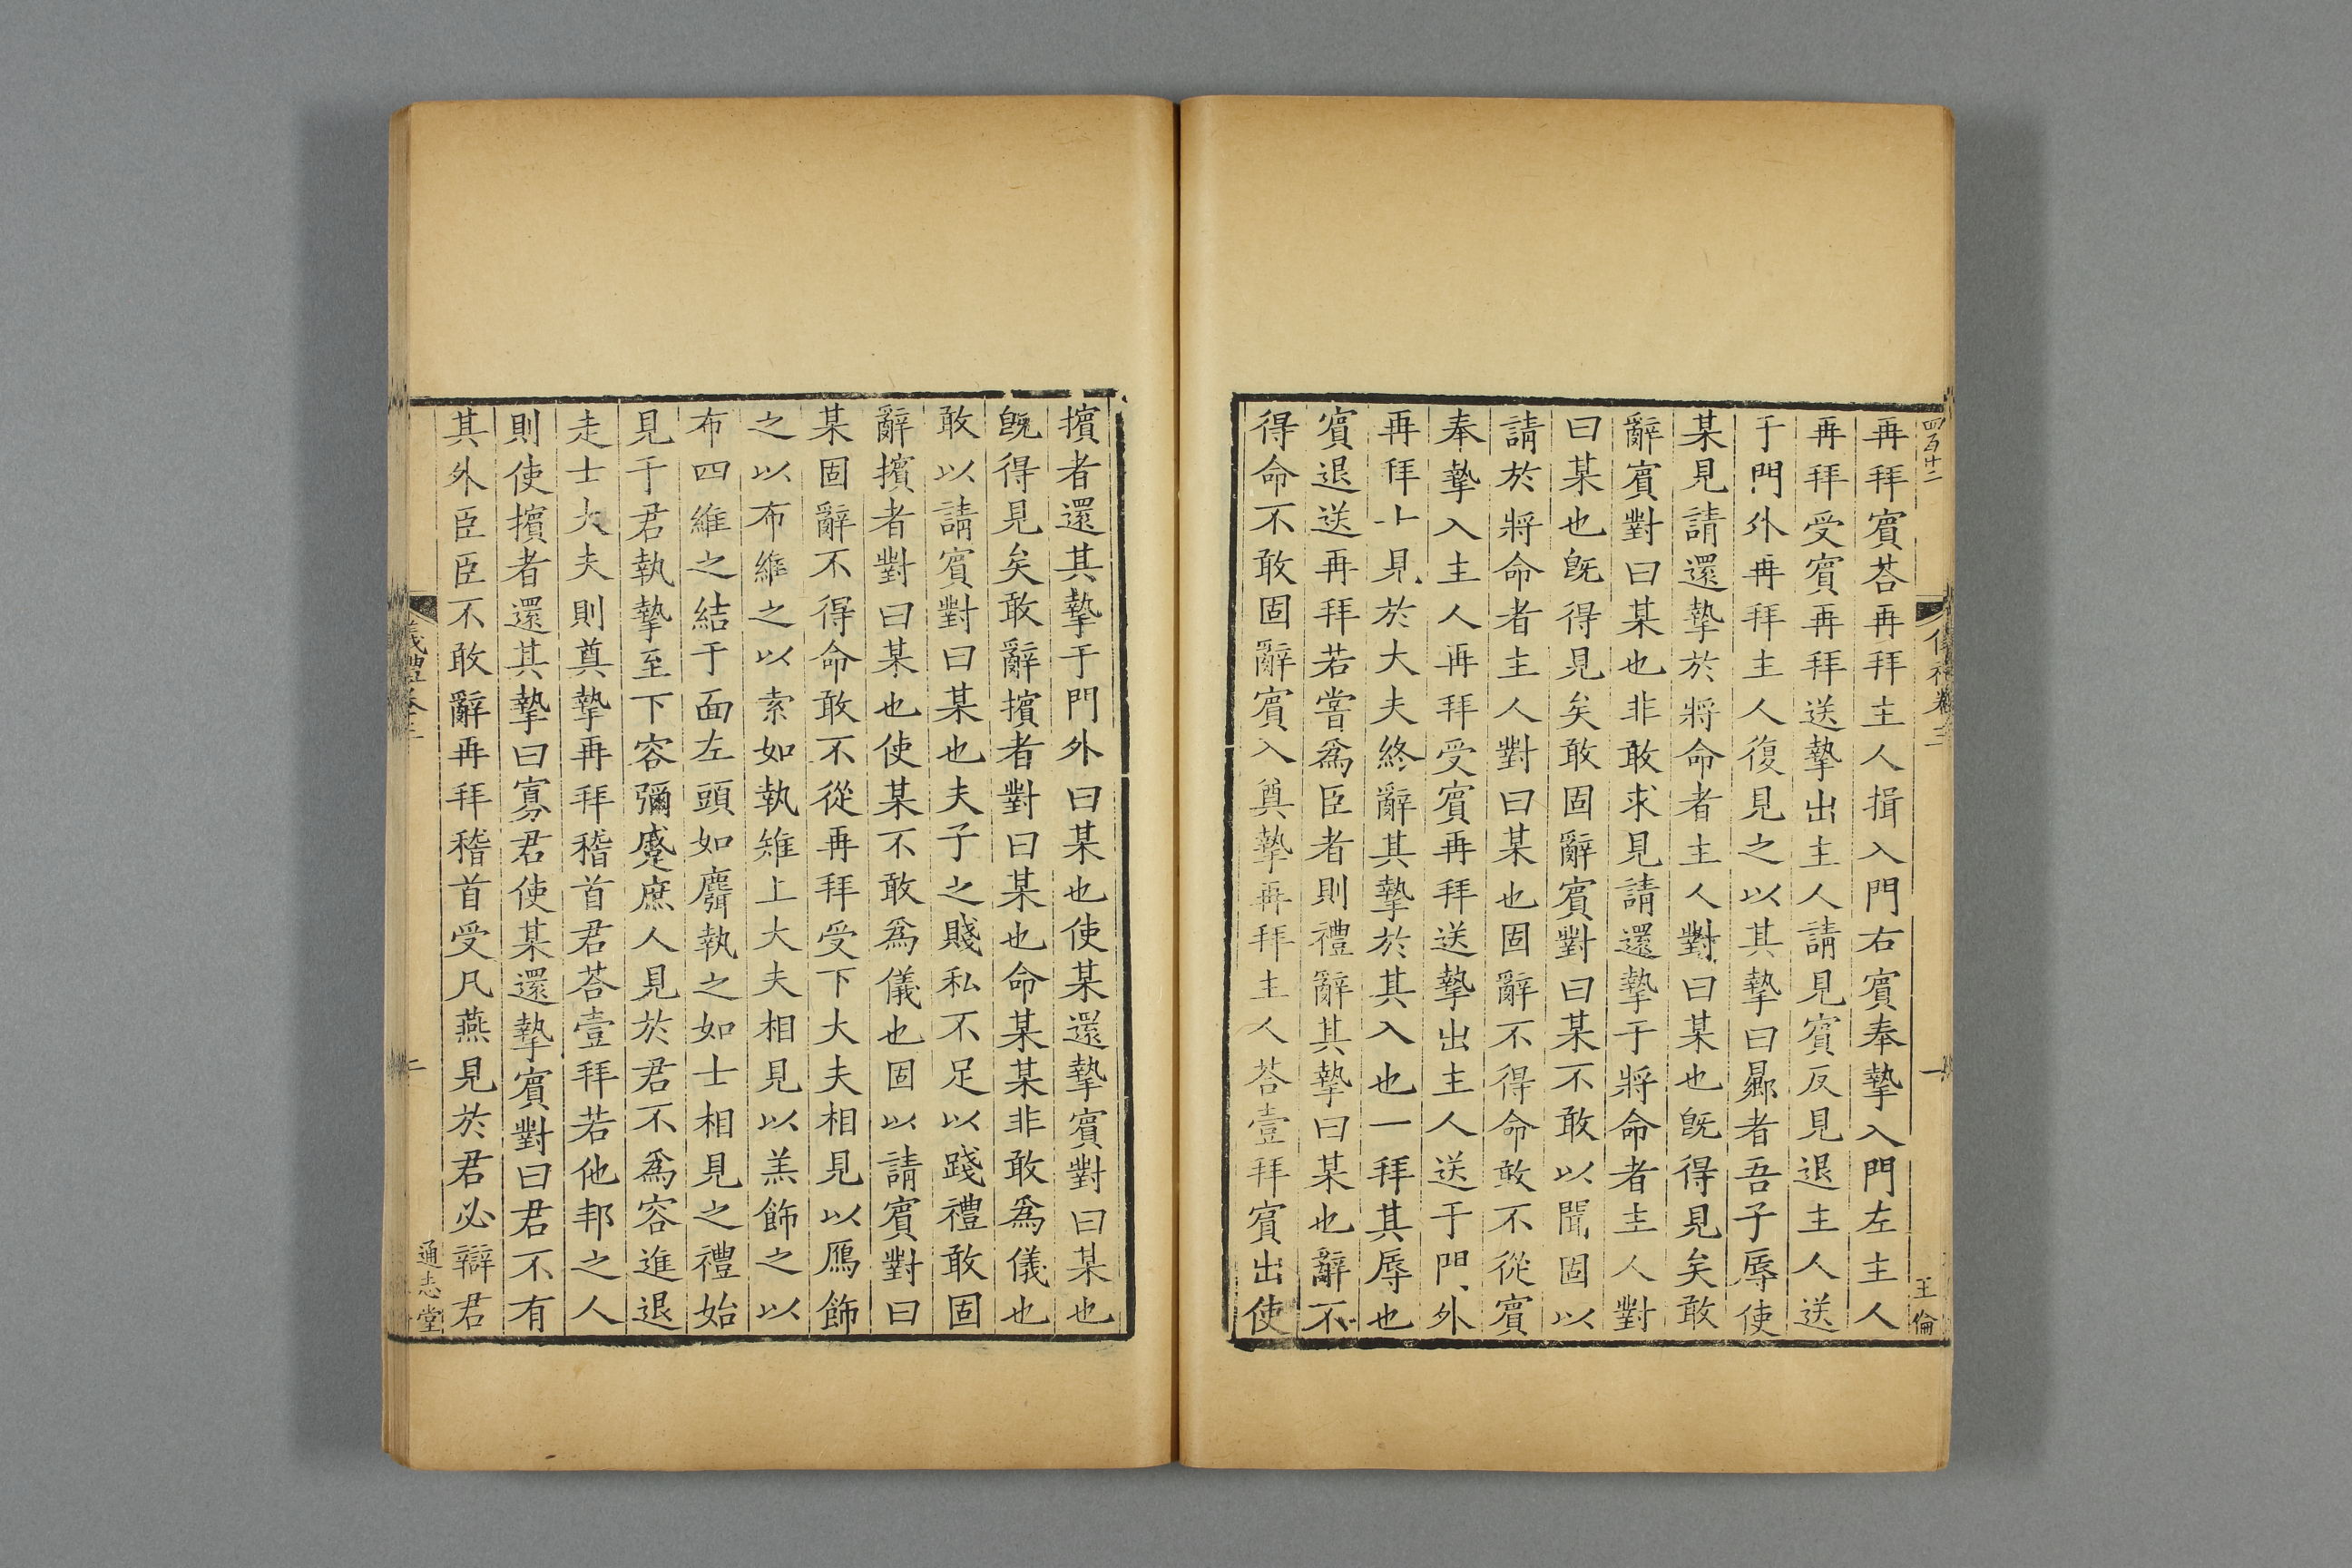 四百十二
儀禮卷三
一
王倫
再拜賓荅再拜主人揖入門右賓奉摯入門左主人
再拜受賓再拜送摯出主人請見賓反見退主人送
于門外再拜主人復見之以其摯曰曏者吾子辱使
某見請還摯於將命者主人對曰某也旣得見矣敢
辭賓對曰某也非敢求見請還摯于將命者主人對
曰某也旣得見矣敢固辭賓對曰某不敢以聞固以
請於將命者主人對曰某也固辭不得命敢不從賓
奉摯入主人再拜受賓再拜送摯出主人送于門外
再拜士見於大夫終辭其摯於其入也一拜其辱也
賓退送再拜若嘗爲臣者則禮辭其摯曰某也辭不
得命不敢固辭賓入奠摯再拜主人荅壹拜賓出使
擯者還其摯于門外曰某也使某還摯賓對曰某也
旣得見矣敢辭擯者對曰某也命某某非敢爲儀也
敢以請賓對曰某也夫子之賤私不足以踐禮敢固
辭擯者對曰某也使某不敢爲儀也固以請賓對曰
某固辭不得命敢不從再拜受下大夫相見以鴈飾
之以布維之以索如執雉上大夫相見以羔飾之以
布四維之結于面左頭如麛執之如士相見之禮始
見于君執摯至下容彌蹙庶人見於君不爲容進退
走士大夫則奠摯再拜稽首君荅壹拜若他邦之人
則使擯者還其摯曰寡君使某還摯賓對曰君不有
其外臣臣不敢辭再拜稽首受凡燕見於君必辯君
儀禮卷三
通志堂